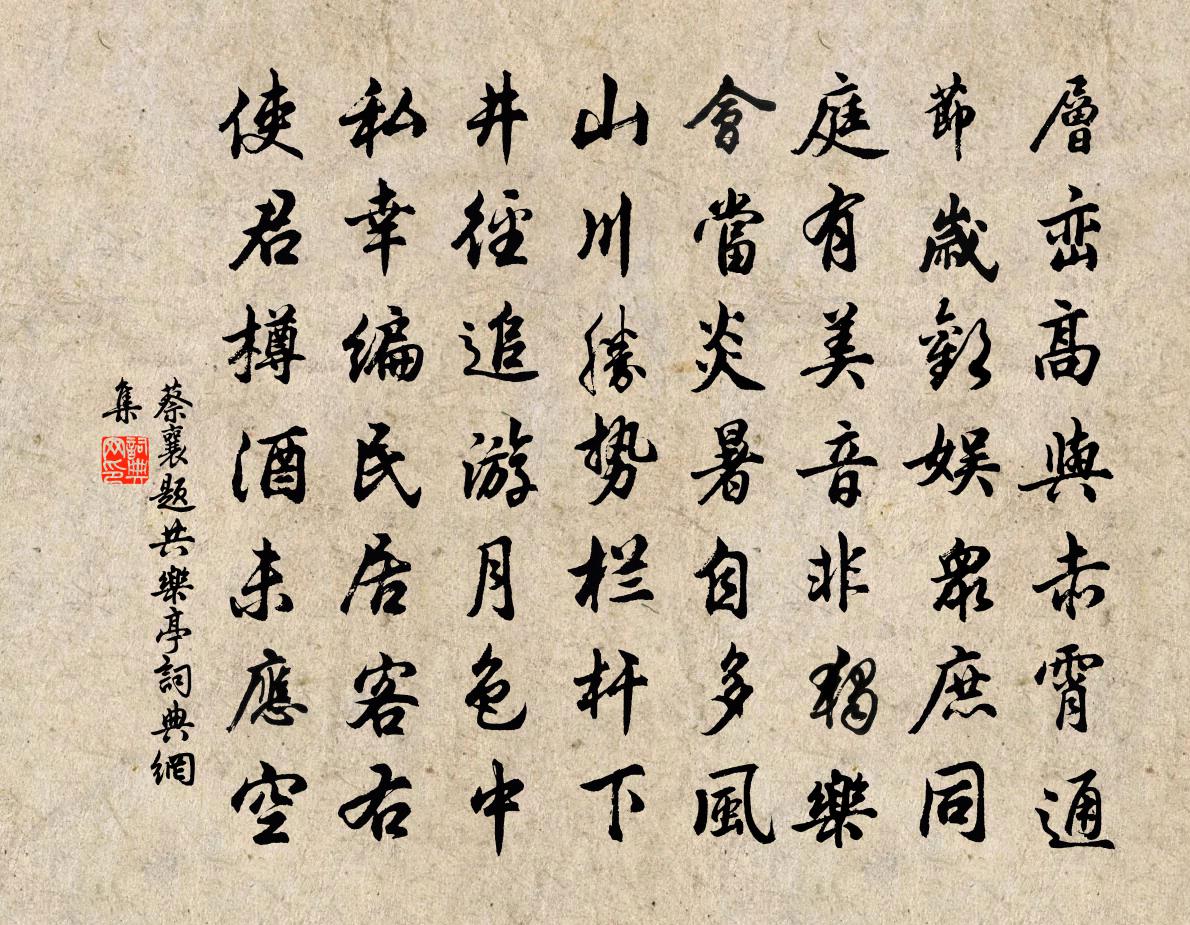 層巒高與赤霄通
節歲歡娛眾庶同
庭有美音非獨樂
會當炎暑自多風
山川勝勢栏杆下
井徑追游月色中
私幸編民居客右
使君樽酒未應空
蔡襄題共樂亭詞典網
集
詞典网印